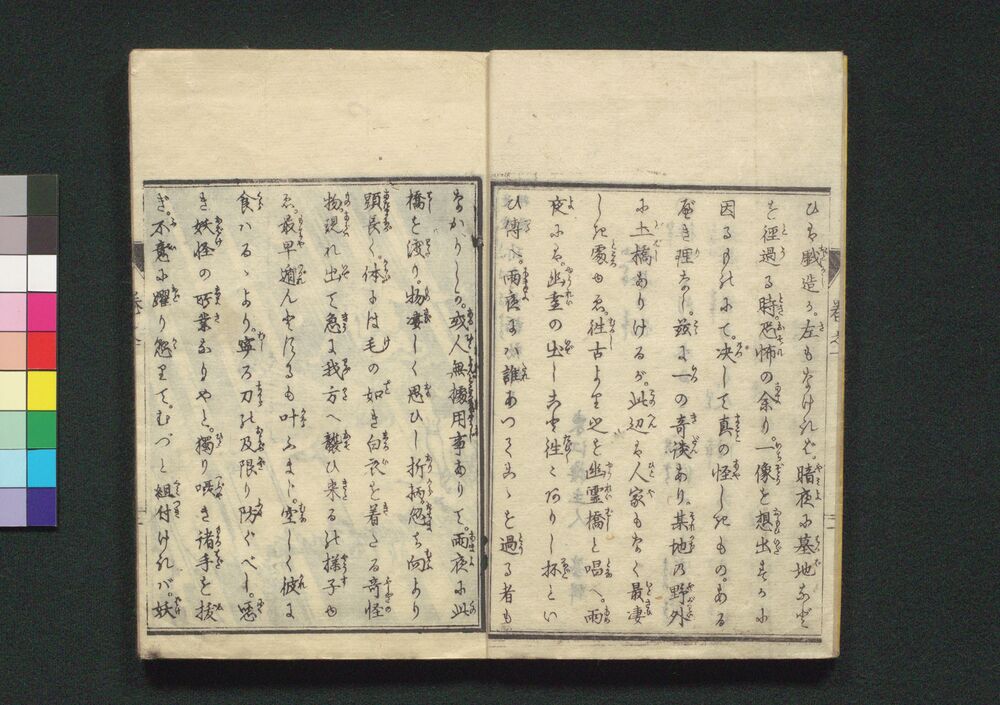 ひは戯造か。左もなければ。暗夜に墓地など
を徑過る時。恐怖の余り。一像を想出すに
因るものにて。决して真の怪しきもの。ある
べき理なし。茲に一の奇談あり。某地の野外
に土橋ありけるが。此辺は人家もなく最凄
しき處ゆゑ。徃古より之を幽霊橋と唱へ。雨
夜には。幽霊の出しこと徃々ありし抔とい
ひ傳へ。雨夜には誰あつてこゝを過る者も
なかりしが。或人無據用事ありて。雨夜に此
橋を渡り。物凄しく思ひし折柄。忽ち向より
頭長く。体には毛の如き白衣を着たる奇怪
物現れ出て。急に我方へ襲ひ来るの様子ゆ
ゑ。最早遁んとするも叶ふまじ。空しく彼に
食はるゝより。寧ろ刀の及限り防ぐべし。悪
き妖怪の所業なりやと。獨り呟き諸手を拔
ぎ。不意に躍り懸りて。むづと組付ければ。妖